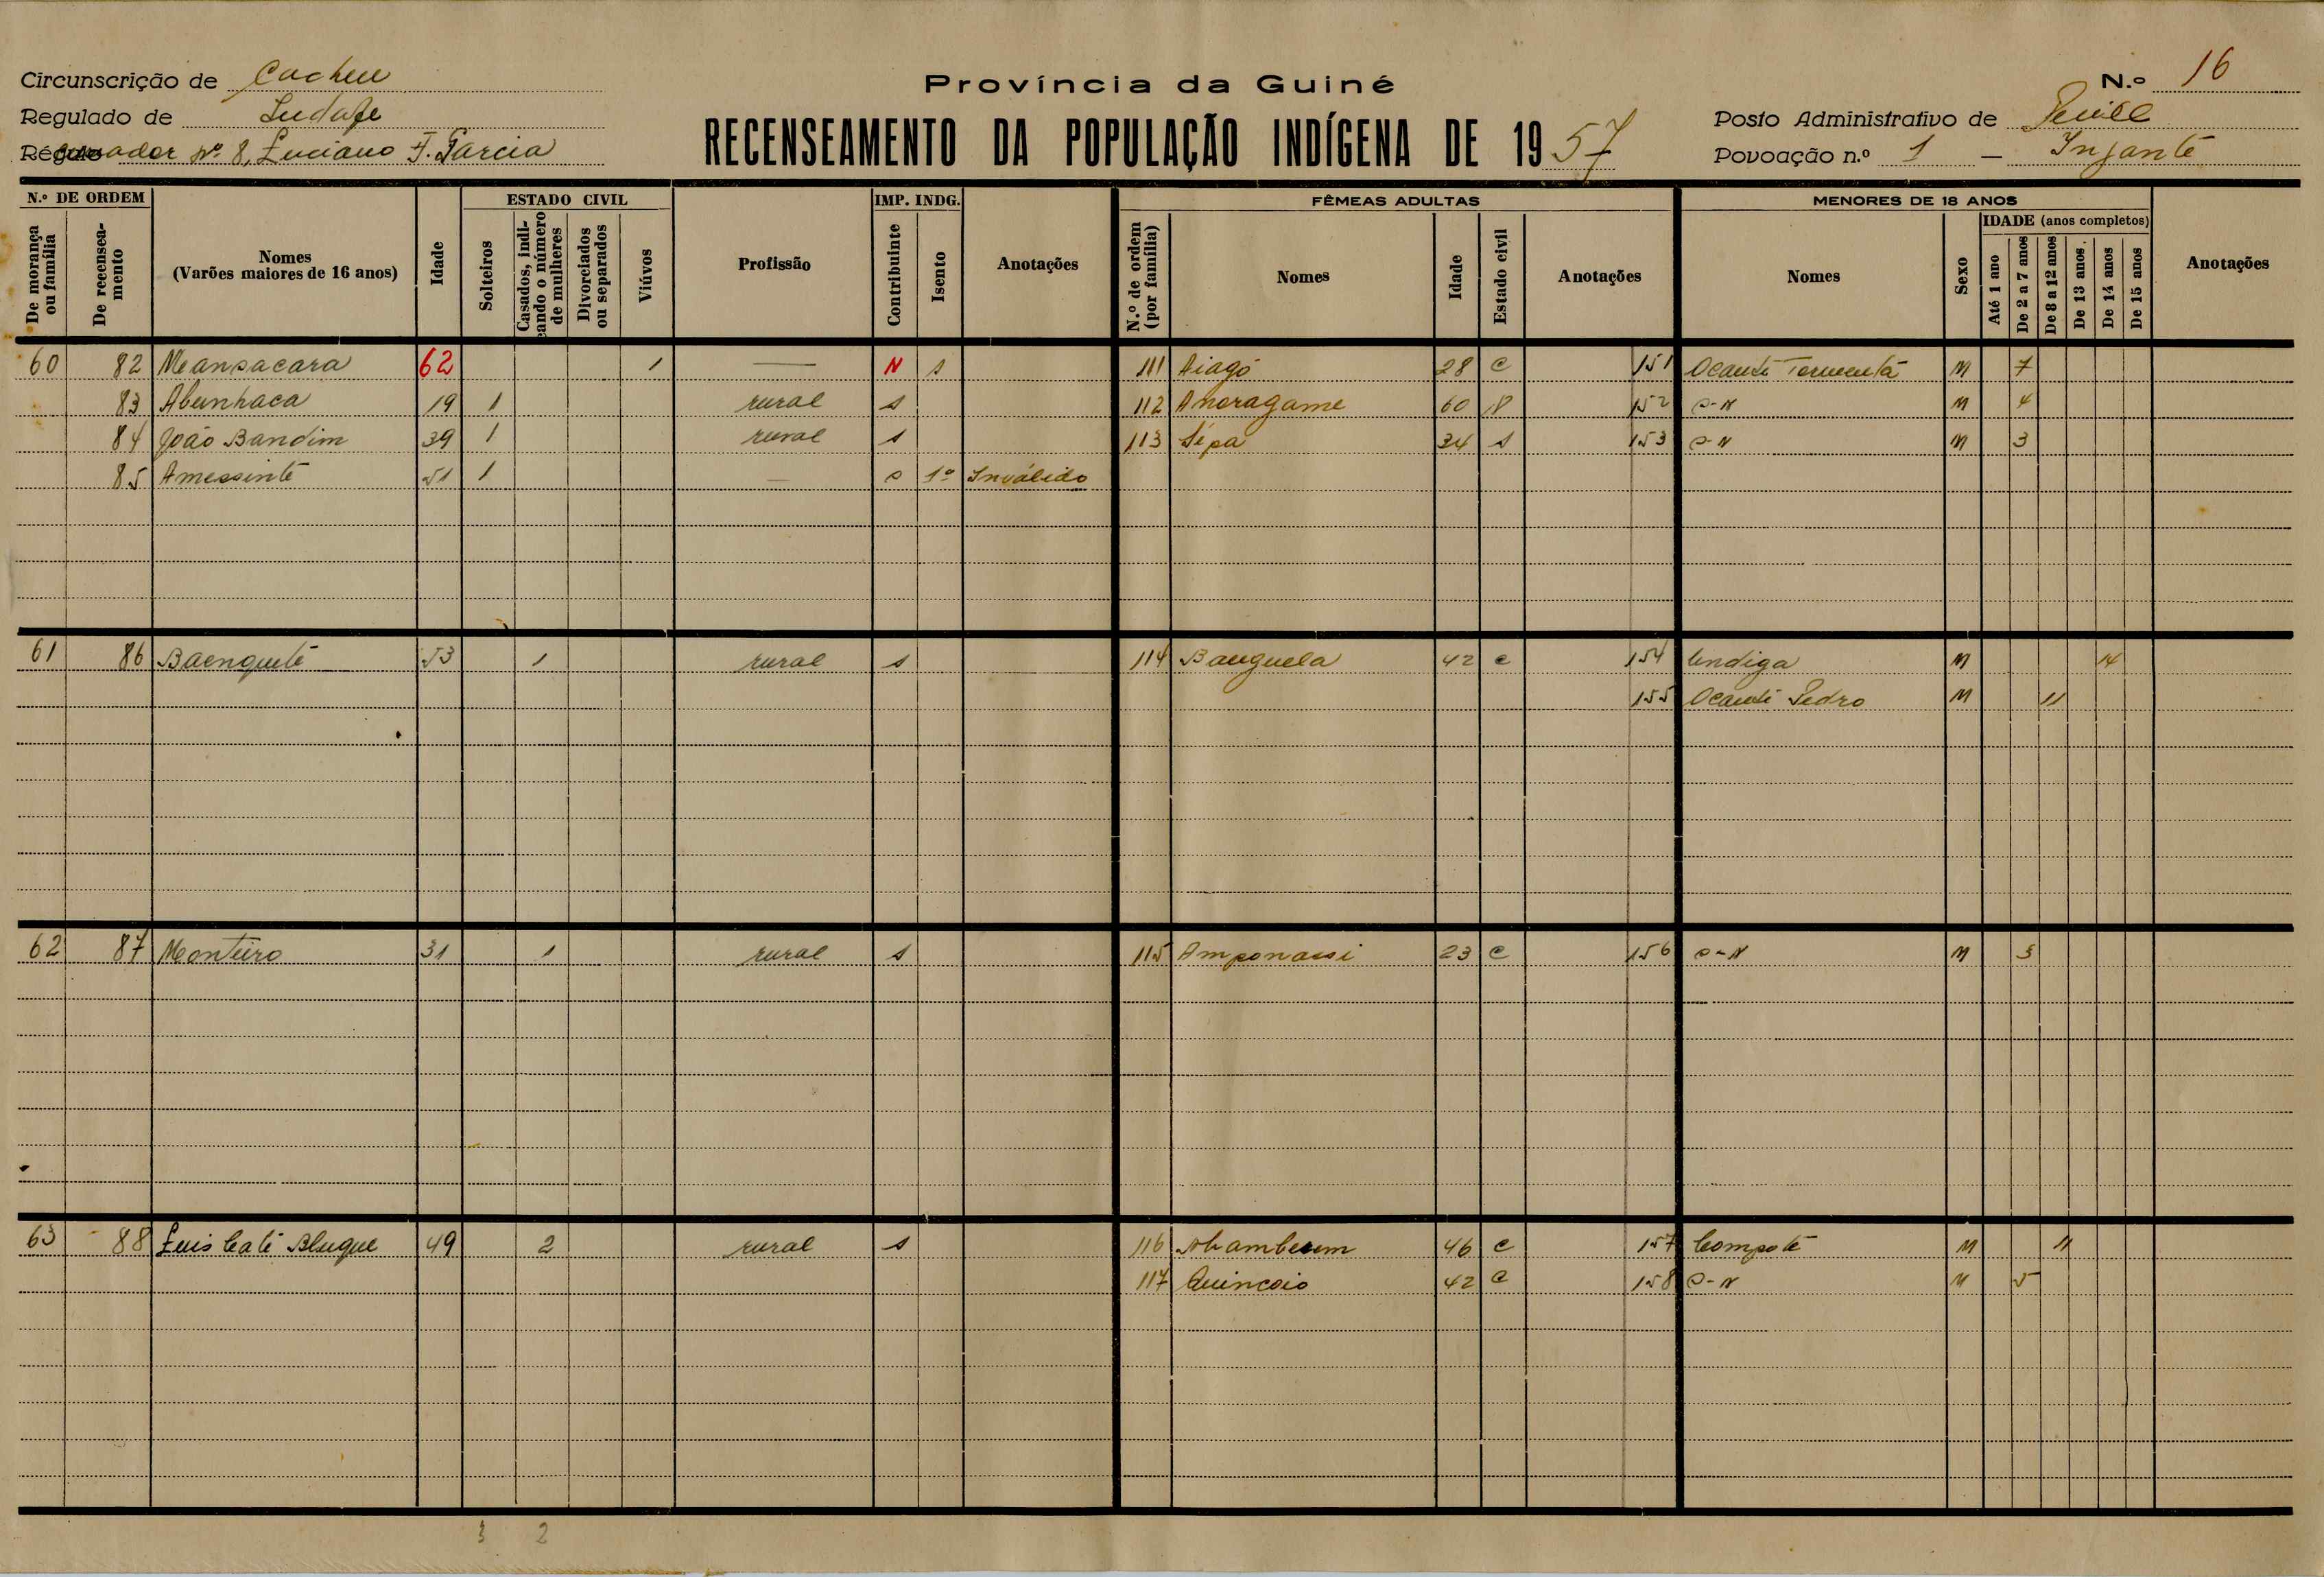 Circunscrição de Cacheu
Província da Guiné
N.º 16
Regulado de
RECENSEAMENTO DA POPULAÇÃO INDÍGENA DE 1957
Posto Administrativo de
Régulo nº 8, Luciano F. Garcia
Povoação n.º 1 — Injante
N.º DE ORDEM
De morança ou família
De recensea-mento
Nomes
(Varões maiores de 16 anos)
Idade
ESTADO CIVIL
Solteiros
Casados, indi-cando o número de mulheres
Divorciados ou separados
Viúvos
Profissão
IMP. INDG.
Contribuinte
Isento
Anotações
FÊMEAS ADULTAS
N.º de ordem (por família)
Nomes
Idade
Estado civil
Anotações
MENORES DE 18 ANOS
Nomes
Sexo
IDADE (anos completos)
Até 1 ano
De 2 a 7 anos
De 8 a 12 anos
De 13 anos
De 14 anos
De 15 anos
Anotações
60 82 Mansacara 62 1 — N s 111 Aiagó 28 C 151 Ocante M 7
83 Abunhaca 19 1 rural s 112 Anoragame 60 152 s-N M 4
84 João Bandim 39 1 rural s 113 Sépa 34 s 153 s-N M 3
85 Amessinte 51 1 — s 1º Inválido
61 86 Baenquete 53 1 rural s 114 Banguela 42 c 154 Undiga M 14
155 Ocante Pedro M 11
62 87 Monteiro 31 1 rural s 115 Amponassi 23 c 156 s-N M 3
63 88 Luis Cate Blugue 49 2 rural s 116 46 c 157 Compote M 11
117 Quincoio 42 c 158 s-N M 5
3 2